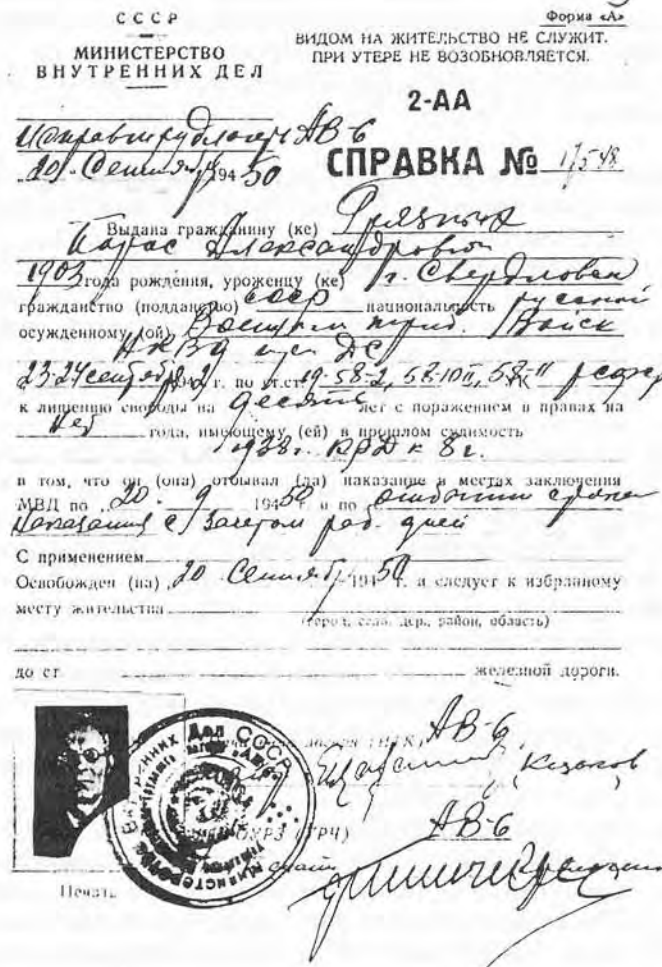 СССР
Форма «А»
МИНИСТЕРСТВО
ВНУТРЕННИХ ДЕЛ
ВИДОМ НА ЖИТЕЛЬСТВО НЕ СЛУЖИТ.
ПРИ УТЕРЕ НЕ ВОЗОБНОВЛЯЕТСЯ.
2-АА
АВ-6
20 Сентября 1950
СПРАВКА № 17548
Выдана гражданину (ке)
Александрович
1903 года рождения, уроженцу (ке) г. Свердловска
гражданство (подданство) СССР национальность русский
осужденному (ой) Военным триб. Войск
НКВД
23-24 сентября 1942 г. по ст.ст. 19-58-2, 58-10 II, 58-11
к лишению свободы на десять лет с поражением в правах на
нет года, имеющему (ей) в прошлом судимость
1938 г. КРД к 8 г.
в том, что он (она) отбывал (ла) наказание в местах заключения
МВД по 20 - 9 1950 г. и по отбытии срока
наказания с зачетом раб. дней
С применением
Освобожден (на) 20 Сентября 1950 г. и следует к избранному
месту жительства
(город, село, дер., район, область)
до ст. железной дороги.
АВ-6
Казаков
ОУРЗ (УРЧ) АВ-6
Министерство Внутренних Дел СССР
Печать